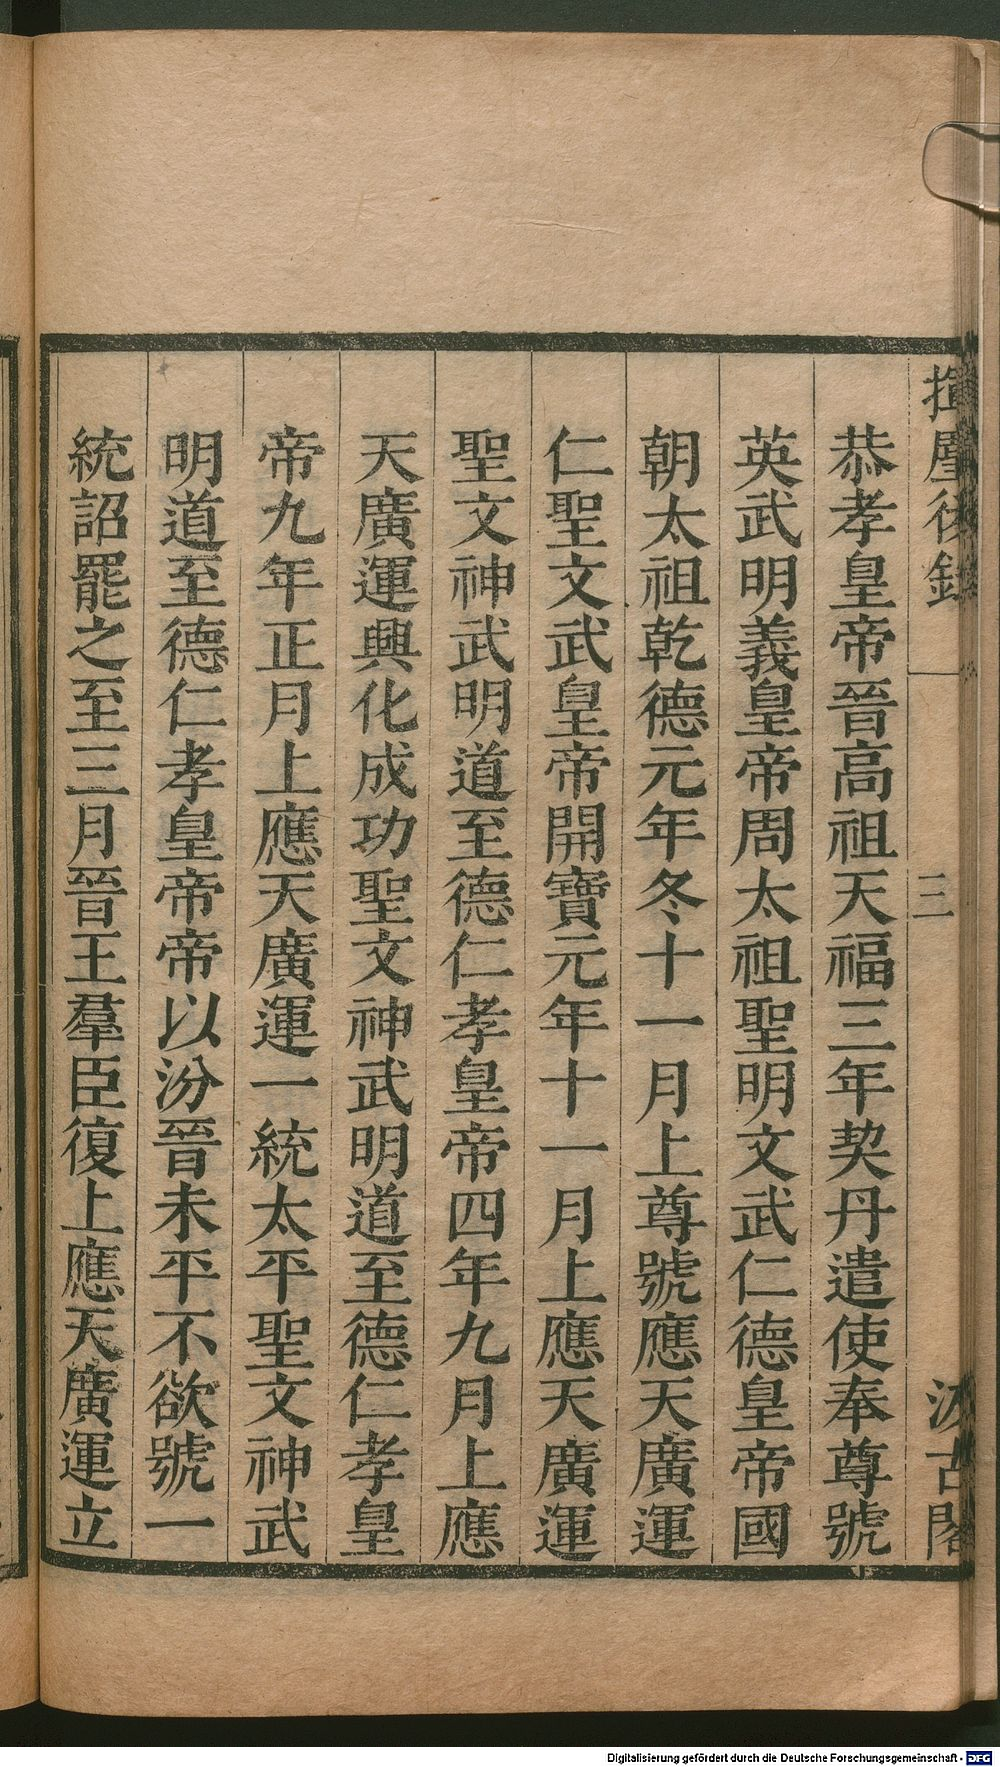 揮麈後録
三
汲古閣
恭孝皇帝晉高祖天福三年契丹遣使奉尊號
英武明義皇帝周太祖聖明文武仁德皇帝國
朝太祖乾德元年冬十一月上尊號應天廣運
仁聖文武皇帝開寶元年十一月上應天廣運
聖文神武明道至德仁孝皇帝四年九月上應
天廣運興化成功聖文神武明道至德仁孝皇
帝九年正月上應天廣運一統太平聖文神武
明道至德仁孝皇帝帝以汾晉未平不欲號一
統詔罷之至三月晉王羣臣復上應天廣運立
Digitalisierung gefördert durch die Deutsche Forschungsgemeinschaft - DFG